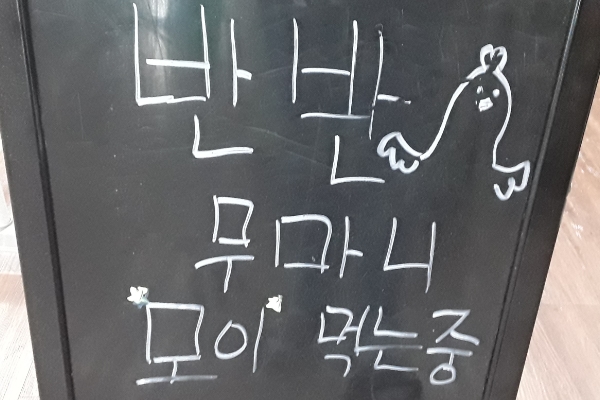 반반
무마니
모이 먹는중